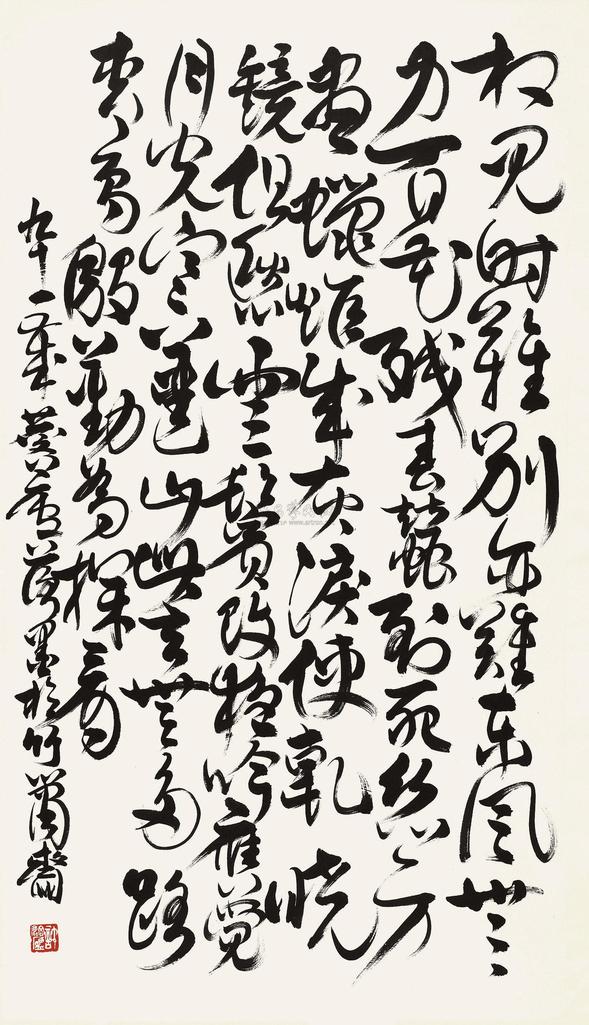 相見時難別亦難東風無
力百花殘春蠶到死絲方
盡蠟炬成灰淚使乾曉
鏡但愁雲鬢改夜吟應覺
月光寒蓬山此去無多路
青鳥殷勤為探看
九十一歲落墨於竹簫齋